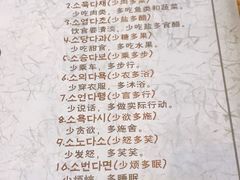 2.소육다채(少肉多菜)
少吃肉类，多吃蔬菜和蔬菜。
3.소염다초(少鹽多醋)
饮食要清淡，少吃盐多食醋。
4.소당다과(少糖多果)
少吃甜食，多吃水果。
5.소승다보(少乘多步)
少乘车，多步行。
6.소의다욕(少衣多浴)
少穿衣服，多沐浴。
7.소언다행(少言多行)
少说话，多做实际行动。
8.소욕다시(少欲多施)
少贪欲，多施舍。
9.소노다소(少怒多笑)
少发怒，多笑笑。
10.소번다면(少煩多眠)
少烦恼，多睡眠